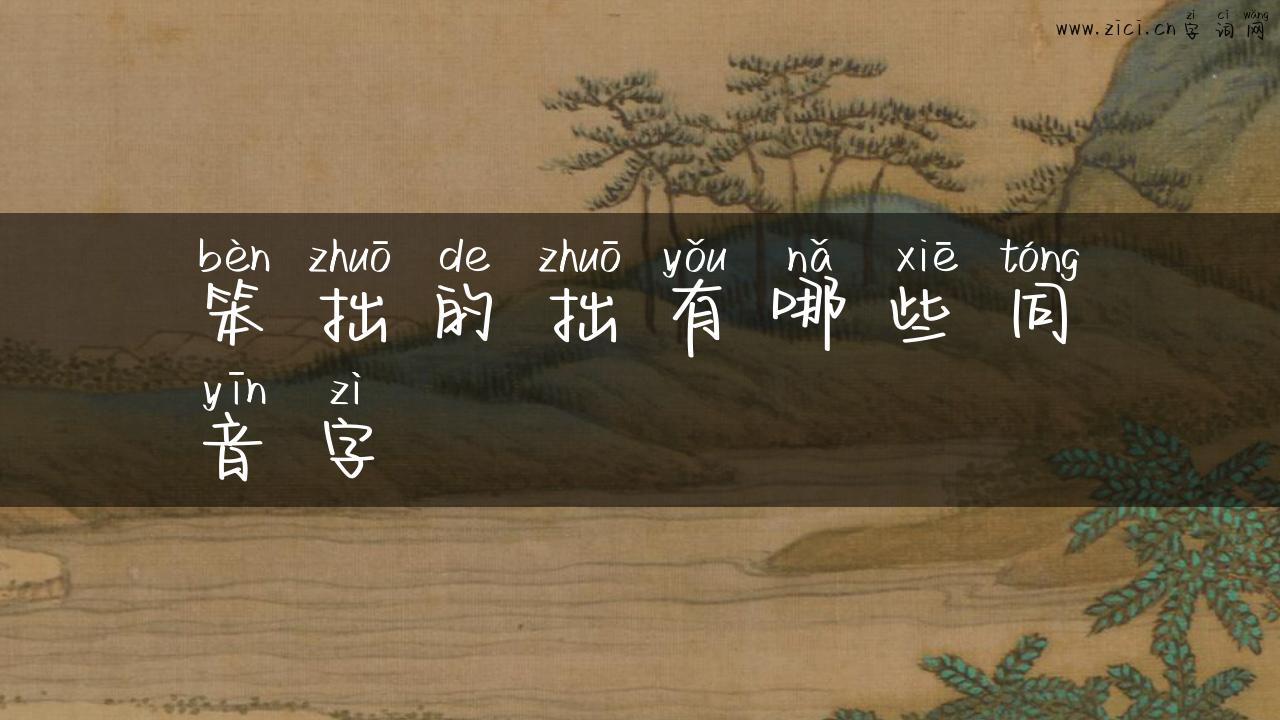 zì cí wǎng
www.zici.cn 字词网
bèn zhuō de zhuō yǒu nǎ xiē tóng
笨拙的拙有哪些同
yīn zì
音字